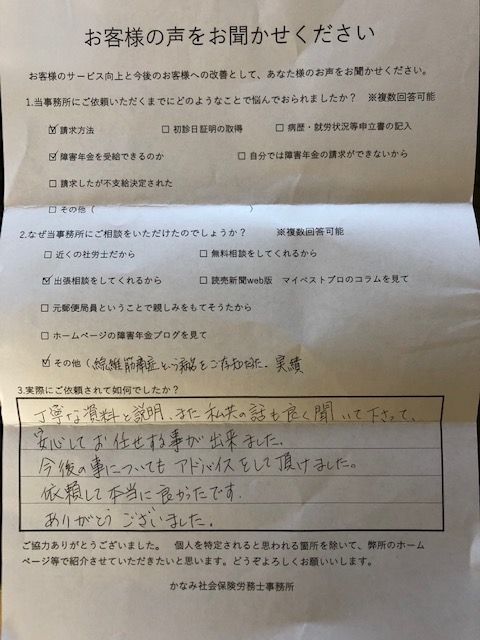 お客様の声をお聞かせください
お客様のサービス向上と今後のお客様への改善として、あなた様のお声をお聞かせください。
1.当事務所にご依頼いただくまでにどのようなことで悩んでおられましたか？　※複数回答可能
☑ 請求方法　□ 初診日証明の取得　□ 病歴・就労状況等申立書の記入
☑ 障害年金を受給できるのか　□ 自分では障害年金の請求ができないから
□ 請求したが不支給決定された
□ その他（　　　　　　　　　　）
2.なぜ当事務所にご相談をいただけたのでしょうか？　※複数回答可能
□ 近くの社労士だから　□ 無料相談をしてくれるから
☑ 出張相談をしてくれるから　□ 読売新聞web版　マイベストプロのコラムを見て
□ 元郵便局員ということで親しみをもてそうだから
□ ホームページの障害年金ブログを見て
☑ その他（線維筋痛症という病名をご存知だった。実績
3.実際にご依頼されて如何でしたか？
丁寧な資料と説明、また私共の話も良く聞いて下さって、
安心してお任せする事が出来ました。
今後の事についてもアドバイスをして頂けました。
依頼して本当に良かったです。
ありがとうございました。
ご協力ありがとうございました。　個人を特定されると思われる箇所を除いて、弊所のホーム
ページ等で紹介させていただきたいと思います。どうぞよろしくお願いいします。
かなみ社会保険労務士事務所